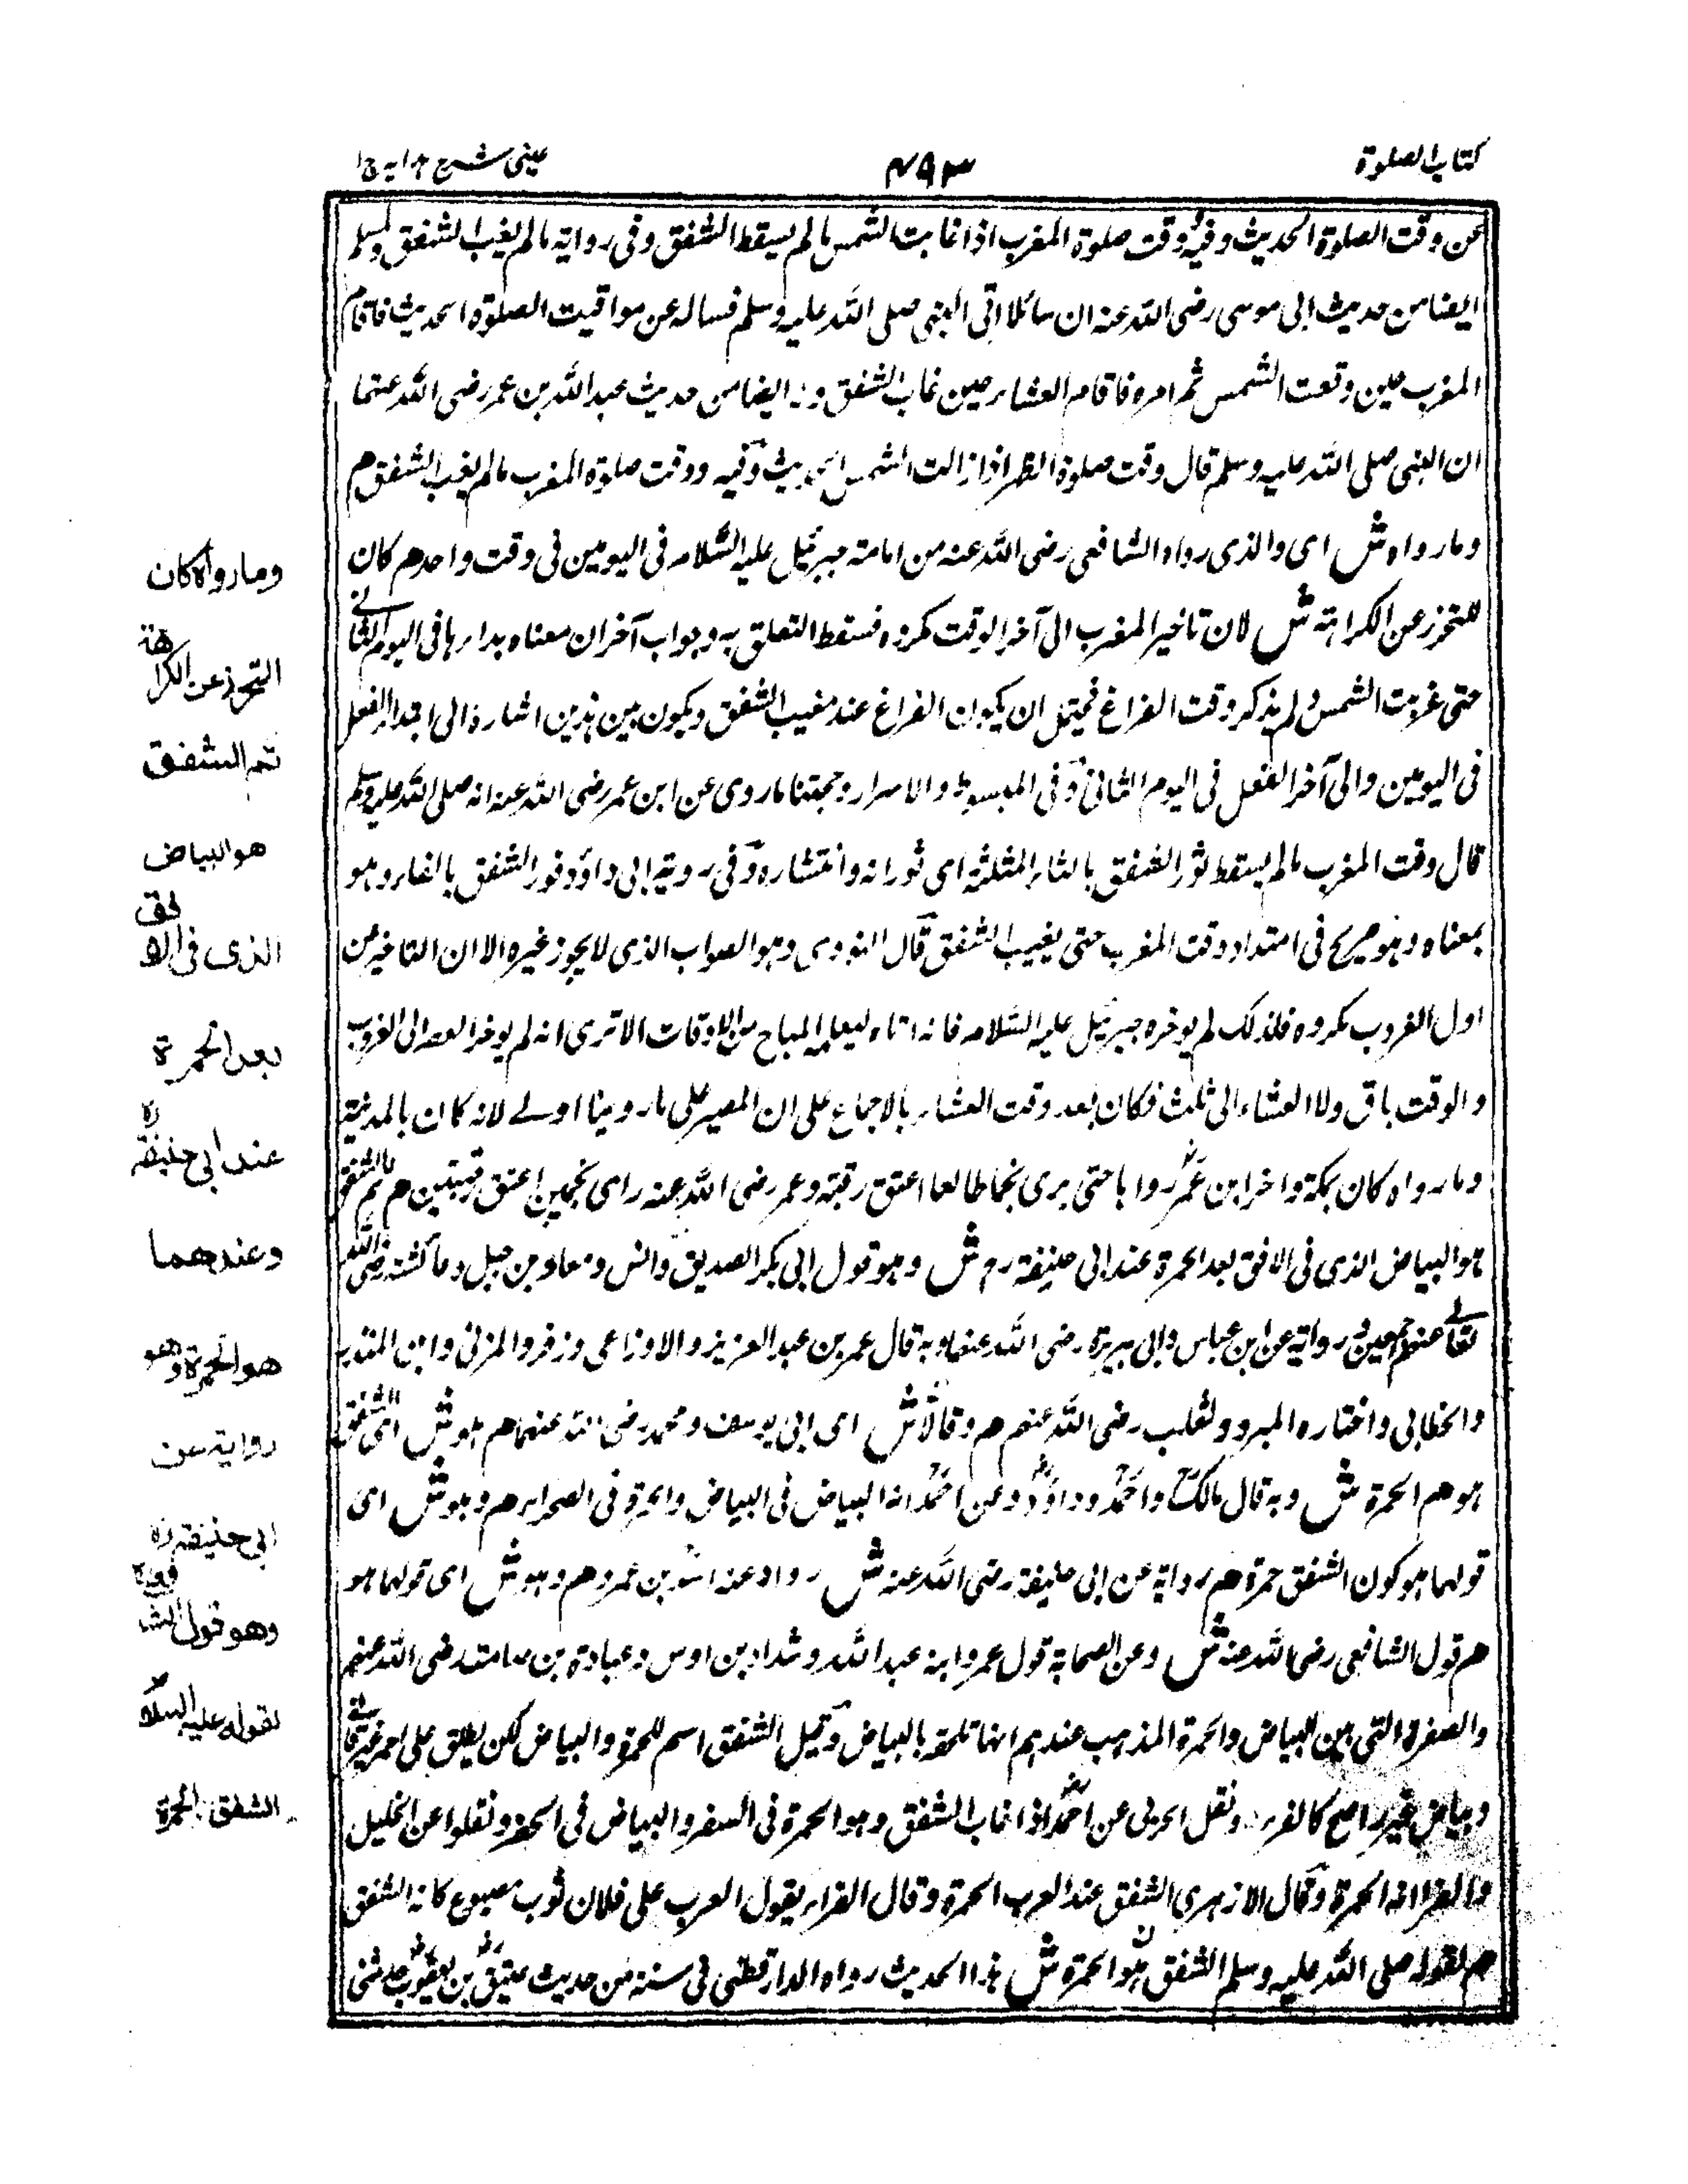 كتاب الصلوة
٧٩٣
عینی شرح هدایه ج ا
عن وقت الصلوة الحديث وفيه وقت صلوة المغرب اذا غابت الشمس مالم يسقط الشفق وفى رواية مالم يغب الشفق ولمسلم
ايضا من حديث ابى موسى رضى الله عنه ان سائلا اتى النبى صلى الله عليه وسلم فساله عن مواقيت الصلوة الحديث فاقام
المغرب حين وقعت الشمس ثم امره فاقام العشاء حين غاب الشفق وله ايضا من حديث عبد الله بن عمر رضى الله عنهما
ان النبى صلى الله عليه وسلم قال وقت صلوة الظهر اذا زالت الشمس الحديث وفيه ووقت صلوة المغرب مالم يغب الشفق م
وما رواه ش اى والذى رواه الشافعى رضى الله عنه من امامة جبرئيل عليه السلام فى اليومين فى وقت واحد م كان
للتحرز عن الكراهة ش لان تاخير المغرب الى آخر الوقت مكروه فسقط التعلق به وجواب آخر ان معناه بدا بها فى اليوم الثانى
حتى غربت الشمس ولم يذكر وقت الفراغ فيحتمل ان يكون الفراغ عند مغيب الشفق ويكون بين هذين اشارة الى ابتداء الفعل
فى اليومين والى آخر الفعل فى اليوم الثانى وفى المبسوط والاسرار وحجتنا ماروى عن ابن عمر رضى الله عنه انه صلى الله عليه وسلم
قال وقت المغرب مالم يسقط ثور الشفق بالثاء المثلثة اى ثورانه وانتشاره وفى روية ابى داؤد فور الشفق بالفاء وهو
بمعناه وهو صريح فى امتداد وقت المغرب حتى يغيب الشفق قال النووى وهو الصواب الذى لا يجوز غيره الا ان التاخير عن
اول الغروب مكروه فلذلك لم يوخره جبرئيل عليه السلام فانه اتاه ليعلمه المباح من الاوقات الا ترى انه لم يوخر العصر الى الغروب
والوقت باق ولا العشاء الى ثلث فكان بعد وقت العشاء بالاجماع على ان المصير على ما روينا اولى لانه كان بالمدينة
وما رواه كان بمكة واخر ابن عمر رواها حتى يرى نجما طالعا اعتق رقبة وعمر رضى الله عنه راى نجمين اعتق رقبتين م ثم الشفق
هو البياض الذى فى الافق بعد الحمرة عند ابى حنيفة رح ش وهو قول ابى بكر الصديق وانس ومعاذ بن جبل وعائشة رضى الله
تعالى عنهم اجمعين ورواية عن ابن عباس وابى هريرة رضى الله عنهما وبه قال عمر بن عبد العزيز والاوزاعى وزفر والمزنى وابن المنذر
والخطابى واختاره المبرد وثعلب رضى الله عنهم م وقالا ش اى ابى يوسف ومحمد رضى الله عنهما م هو ش اى الشفق
هو م الحمرة ش وبه قال مالك واحمد وداؤد وعن احمد انه البياض فى البياض والحمرة فى الصحراء م وهو ش اى
قولهما هو كون الشفق حمرة م رواية عن ابى حنيفة رضى الله عنه ش رواه عنه اسد بن عمرو م وهو ش اى قولهما هو
م قول الشافعى رضى الله عنه ش وعن الصحابة قول عمر وابنه عبد الله وشداد بن اوس وعبادة بن صامت رضى الله عنهم
والصفرة التى بين البياض والحمرة المذهب عندهم انها تلحق بالبياض وقيل الشفق اسم للحمرة والبياض لكن يطلق على احمر غير قانى
وبياض غير ناصع كالفرس ونقل الحربى عن احمد اذا غاب الشفق وهو الحمرة فى السفر والبياض فى الحضر ونقلوا عن الخليل
والفراء انه الحمرة وقال الازهرى الشفق عند العرب الحمرة وقال الفراء يقول العرب على فلان ثوب مصبوغ كانه الشفق
م لقوله صلى الله عليه وسلم الشفق هو الحمرة ش هذا الحديث رواه الدارقطنى فى سننه من حديث عتيق بن يعقوب حدثنى
وما رواه كان
التحرز عن الكراهة
ثم الشفق
هو البياض
الذى فى الافق
بعد الحمرة
عند ابى حنيفة رہ
وعندهما
هو الحمرة وهو
رواية عن
ابى حنيفة رہ
وهو قول الشافعى
لقوله عليه السلام
الشفق الحمرة